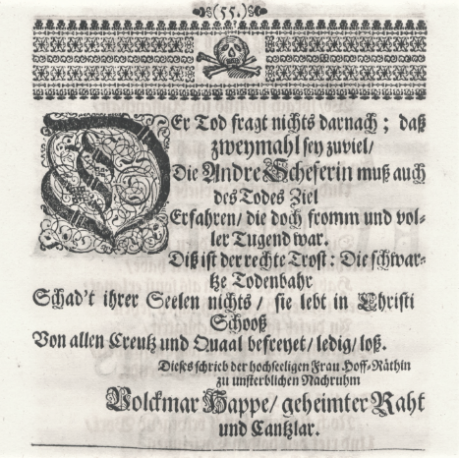 (55.)
DEr Tod fragt nichts darnach; daß
zweymahl sey zuviel/
Die Andre Scheferin muß auch
des Todes Ziel
Erfahren/ die doch fromm und vol-
ler Tugend war.
Diß ist der rechte Trost: Die schwar-
tze Todenbahr
Schad't ihrer Seelen nichts/ sie lebt in Christi
Schooß
Von allen Creutz und Quaal befreyet/ ledig/ loß.
Dieses schrieb der hochseeligen Frau Hoff-Räthin
zu unsterblichen Nachruhm
Volckmar Happe/ geheimter Raht
und Cantzlar.